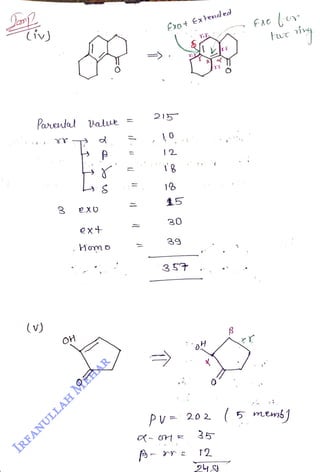 Imp
(iv)
Exo + Extended
Exo for
two ring
δ r.r
r.r
γ β α
r.r
O
⇒
O
Parental Value = 215
rr → α = 10
→ β = 12
→ γ = 18
→ δ = 18
3 exo = 15
ext = 30
Homo = 39
357
(v)
OH
O
⇒
OH
β
rr
α
O
IRFANULLAH MEHAR
PV = 202 ( 5 memb)
α-OH = 35
β-rr = 12
249